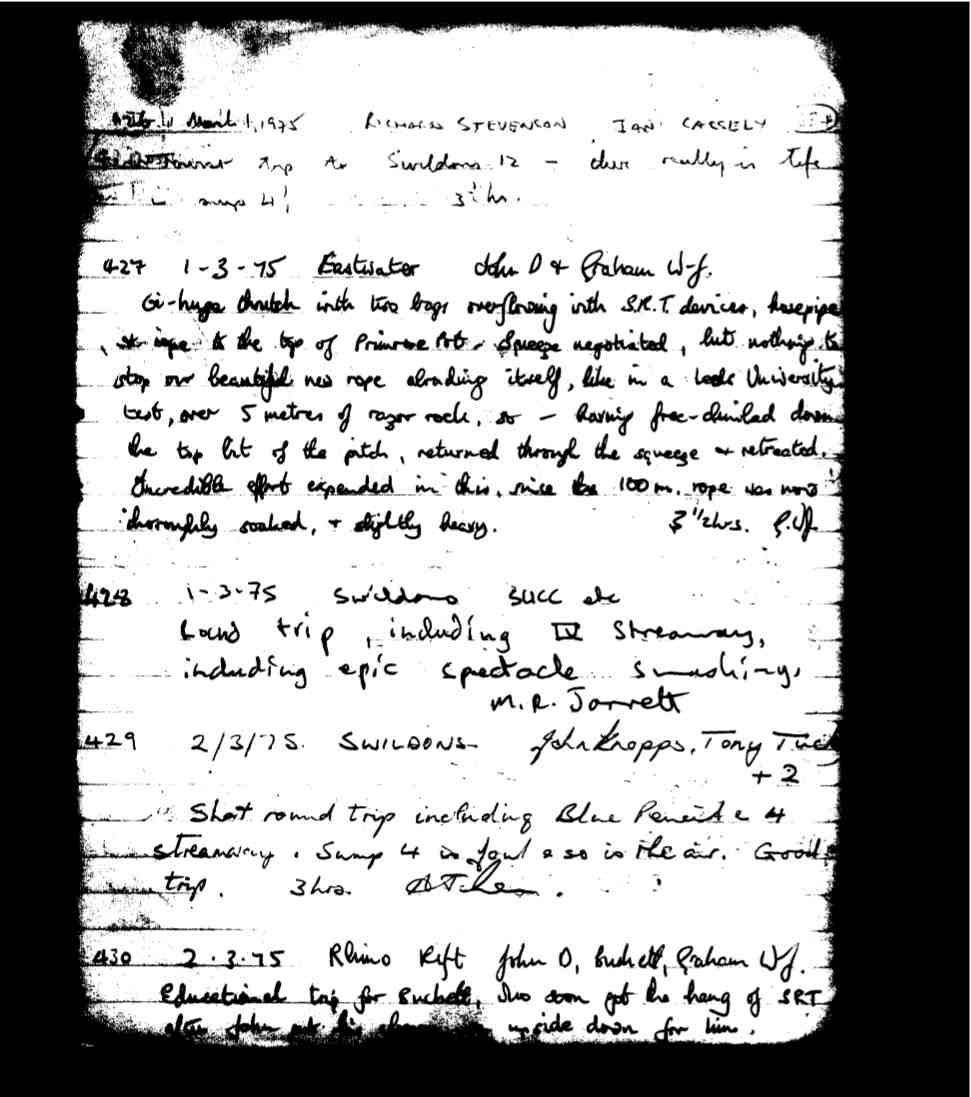 March 1, 1975 RICHARD STEVENSON IAN CASSELY
Tourist trip to Swildons 12 - there really is life
in sump 4! 3½ hr.
427 1-3-75 Eastwater John D & Graham W-J.
Gi-huge thrutch with two bags overflowing with S.R.T. devices, hosepipe
, & rope to the top of Primrose Pot. Squeeze negotiated, but nothing to
stop our beautiful new rope abrading itself, like in a Leeds University
test, over 5 metres of razor rock, so - having free-climbed down
the top bit of the pitch, returned through the squeeze & retreated.
Incredible effort expended in this, since the 100 m. rope was now
thoroughly soaked, & slightly heavy. 3 1/2 hrs. G.WJ
428 1-3-75 Swildons SUCC etc
Round trip, including IV Streamway,
including epic spectacle smashing,
M.R. Jarrett
429 2/3/75. SWILDONS- John Knopps, Tony Tuck
+ 2
Short round trip including Blue Pencil & 4
streamway. Sump 4 is foul & so is the air. Good
trip. 3 hrs.
430 2.3.75 Rhino Rift John D, Suchett, Graham WJ.
Educational trip for Suchett, who soon got the hang of SRT
after John put his upside down for him.